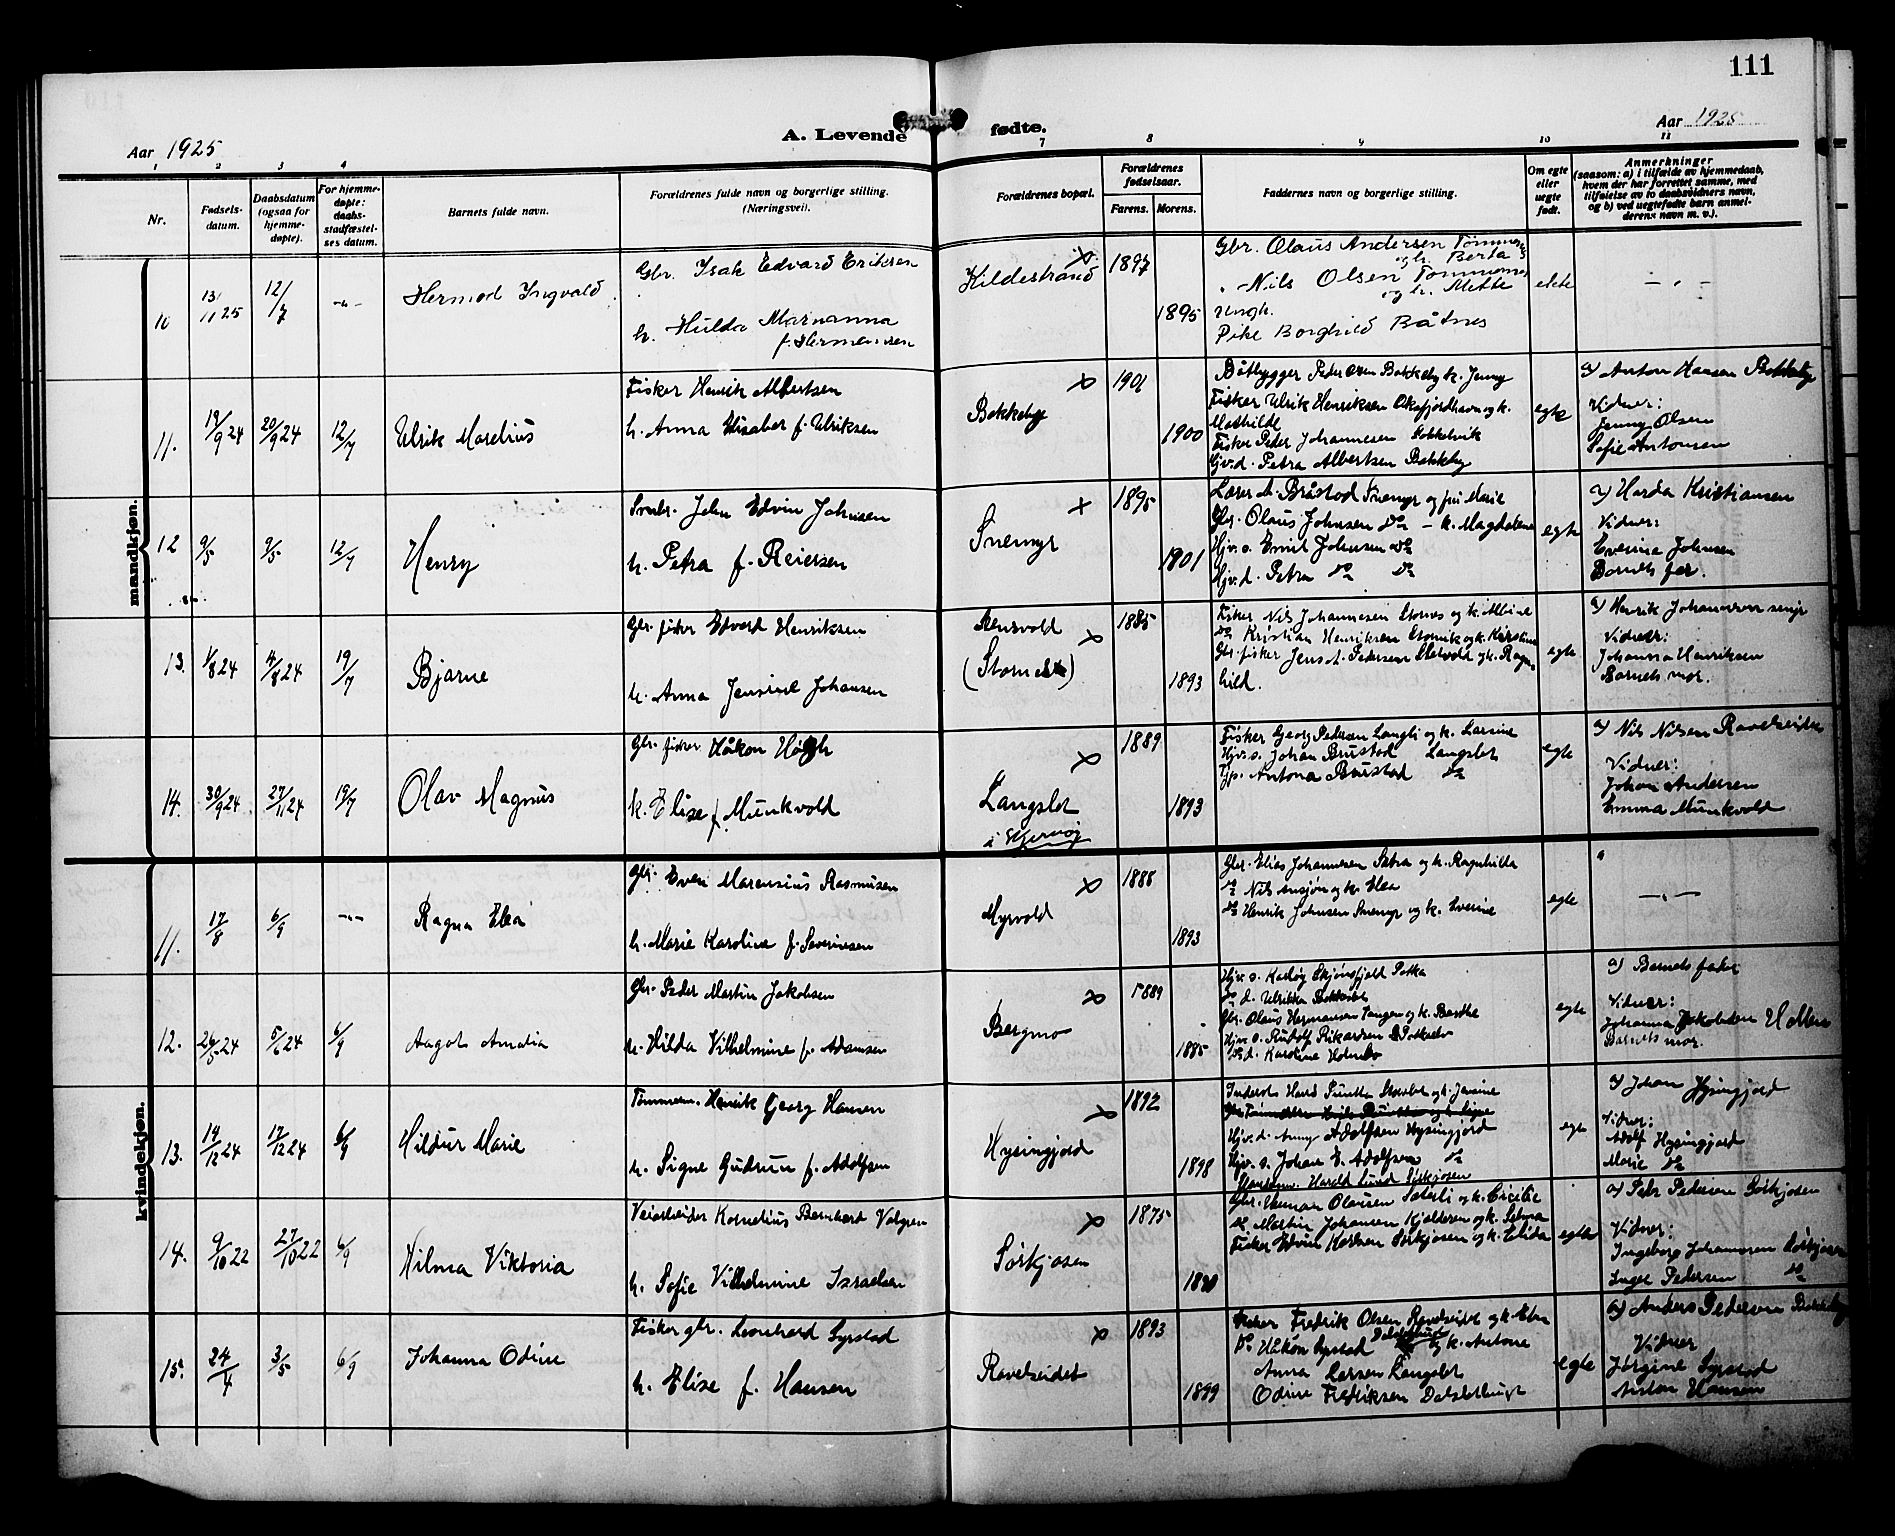 111
Aar 1925
A. Levende fødte.
Aar 1925
1 2 3 4 7 8 9 10 11
Nr.
Fødsels-
datum.
Daabsdatum
(ogsaa for
hjemme-
døpte).
For hjemme-
døpte:
daabs-
stadfæstel-
ses datum.
Barnets fulde navn.
Forældrenes fulde navn og borgerlige stilling.
(Næringsvei).
Forældrenes bopæl.
Forældrenes
fødselsaar.
Farens. Morens.
Faddernes navn og borgerlige stilling.
Om egte
eller
uegte
født.
Anmerkninger
(saasom: a) i tilfælde av hjemmedaab,
hvem der har forrettet samme, med
tilføielse av to daabsvidners navn,
og b) ved uegtefødte barn anmel-
derens navn m. v.).
mandkjøn.
10 13/11 25 12/7 -"- Hermod Ingvald
Gbr. Isak Edvard Eriksen
h. Hulda Marianna
f. Hermansen
Kildestrand x 1897 1895
Gbr. Olaus Andersen
og h. Berta
" Nils Olsen
og h. Mette
Ungk.
Pike Borghild Båtnes
ekte
- " -
11. 19/9 24 20/9 24 12/7 Ulrik Marelius
Fisker Henrik Albertsen
h. Anna Elisabet f. Ulriksen
Bakkeby x 1901 1900
Båtbygger Peder Olsen Bakkeby k. Jenny
Fisker Ulrik Henriksen Oksfjordhavn og k.
Mathilde
Fisker Peder Johannesen
Hjv.d. Petra Albertsen Bakkeby
egte
a) Anton Hansen Bakkeby
Vidner:
Jenny Olsen
Sofie Antonsen
12 9/5 9/5 12/7 Henry
Smbr. John Edvin Johnsen
h. Petra f. Reiersen
Snemyr x 1895 1901
Lærer A. Bråstad Snemyr og fru Marie
Gbr. Olaus Johnsen do - k. Magdalena
Hjv.s. Emil Johnsen do
Hjv.d. Petra do do
egte
a) Harda Kristiansen
Vidner:
Everine Johnsen
Barnets far.
13. 1/8 24 4/8 24 19/7 Bjarne
Gbr. fisker Edvard Henriksen
h. Anna Jensine Johansen
(Stornes) x 1885 1893
Fisker Nils Johannesen Stornes og k. Albine
do Kristian Henriksen Storvik og k. Kirstine
Gbr. fisker Jens A. Pedersen og k. Ragn-
hild.
egte
a) Henrik Johannesen
Vidner:
Johanna Henriksen
Barnets mor.
14. 30/9 24 27/11 24 19/7 Olav Magnus
Gbr. fisker Håkon Høgh
h. Elise f. Munkvold
Langslet
i Skjervøy x 1889 1893
Fisker Georg Pedersen Langli og k. Larsine
Hjv.s. Johan Brustad Langslet
Tjp. Antona Brustad do
egte
a) Nils Nilsen Ravelseidet
Vidner:
Johan Andersen
Emma Munkvold
kvindekjøn.
11. 17/8 6/9 -"- Ragna Elea
Gbr. Even Marensius Rasmusen
h. Marie Karoline f. Severinsen
Myrvold x 1888 1893
Gbr. Elias Johannesen Sætra og k. Ragnhilda
do Nils Ansjøn og k. Elea
do Henrik Johnsen Snemyr og k. Everine
egte
- " -
12. 26/5 24 5/6 24 6/9 Aagot Amalia
Gbr. Peder Martin Jakobsen
h. Hilda Vilhelmine f. Adamsen
Bergmo x 1889 1885
Hjv.s. Karløg Skjönsfjeld Potka
do d. Ulrikka
Gbr. Olaus Hermansen Tangen og k. Berthe
Hjv.s. Rudolf Rikardsen
do d. Karoline
egte
a) Barnets fader
Vidner:
Johanna Jakobsen
Barnets mor.
13. 14/12 24 17/12 24 6/9 Hildur Marie
Tømmerm. Henrik Georg Hansen
h. Signe Gudrun f. Adolfsen
Hysingjord x 1892 1898
Hjv.d. Anny Adolfsen Hysingjord
Hjv.s. Johan E. Adolfsen do
Harald Lund Sørkjosen
egte
a) Johan Hysingjord
Vidner:
Adolf Hysingjord
Marie do
14. 9/10 22 27/10 22 6/9 Hilma Viktoria
Veiarbeider Kornelius Bernhard Valgren
h. Sofie Vilhelmine Israelsen
Sørkjosen x 1875
Gbr. Herman Olausen Sæterli og k. Cicilie
do Martin Johansen Kjelderen og k.
Fisker Edvin Karlsen Sørkjosen og k. Elida
egte
a) Peder Pedersen Sørkjosen
Vidner:
Ingeborg Johannesen Sørkjosen
Inger Pedersen do
15. 24/4 3/5 6/9 Johanna Odine
Fisker gbr. Leonhard Syrstad
h. Elise f. Hansen
Ravelseidet x 1893 1899
Fisker Fredrik Olsen Ravelseidet og k. Edna
do Håkon Syrstad og k. Antone
Anna Larsen Langslet
Odine Fredriksen
egte
a) Anders Pedersen Bakkeby
Vidner
Jørgine Syrstad
Anton Hansen